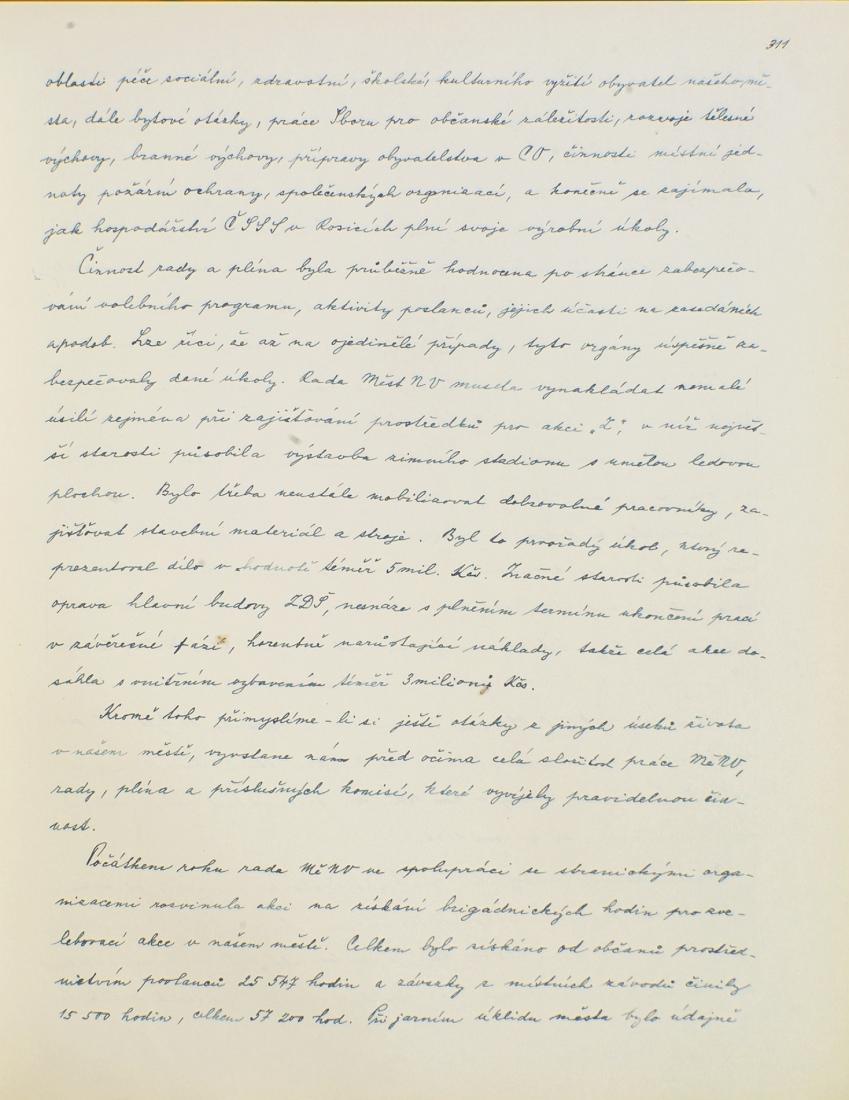 311
oblasti péče sociální, zdravotní, školské, kulturního vyžití obyvatel našeho mě-
sta, dále bytové otázky, práce Sboru pro občanské záležitosti, rozvoje tělesné
výchovy, branné výchovy, přípravy obyvatelstva v CO, činnosti místní jed-
noty požární ochrany, společenských organizací, a konečně se zajímala,
jak hospodářství ČSSS v Rosicích plní svoje výrobní úkoly.
Činnost rady a pléna byla průběžně hodnocena po stránce zabezpečo-
vání volebního programu, aktivity poslanců, jejich účasti na zasedáních
apodob. Lze říci, že až na ojedinělé případy, tyto orgány úspěšně za-
bezpečovaly dané úkoly. Rada Měst NV musela vynakládat nemalé
úsilí zejména při zajišťování prostředků pro akci „Z“, v níž najvět-
ší starosti působila výstavba zimního stadionu s umělou ledovou
plochou. Bylo třeba neustále mobilizovat dobrovolné pracovníky, za-
jišťovat stavební materiál a stroje. Byl to prvořadý úkol, který re-
prezentoval dílo v hodnotě téměř 5 mil. Kčs. Značné starosti působila
oprava hlavní budovy ZDŠ, nesnáze s plněním termínu ukončení prací
v závěrečné fázi, horentně narůstající náklady, takže celá akce do-
sáhla s vnitřním vybavením téměř 3 milionů Kčs.
Kromě toho přimyslíme-li si ještě otázky z jiných úseků života
v našem městě, vyvstane nám před očima celá složitost práce MěNV,
rady, pléna a příslušných komisí, které vyvíjely pravidelnou čin-
nost.
Počátkem roku rada MěNV ve spolupráci se stranickými orga-
nizacemi rozvinula akci na získání brigádnických hodin pro zve-
lebovací akce v našem městě. Celkem bylo získáno od občanů prostřed-
nictvím poslanců 25 547 hodin a závazky z místních závodů činily
15 500 hodin, celkem 57 200 hod. Při jarním úklidu města bylo údajně